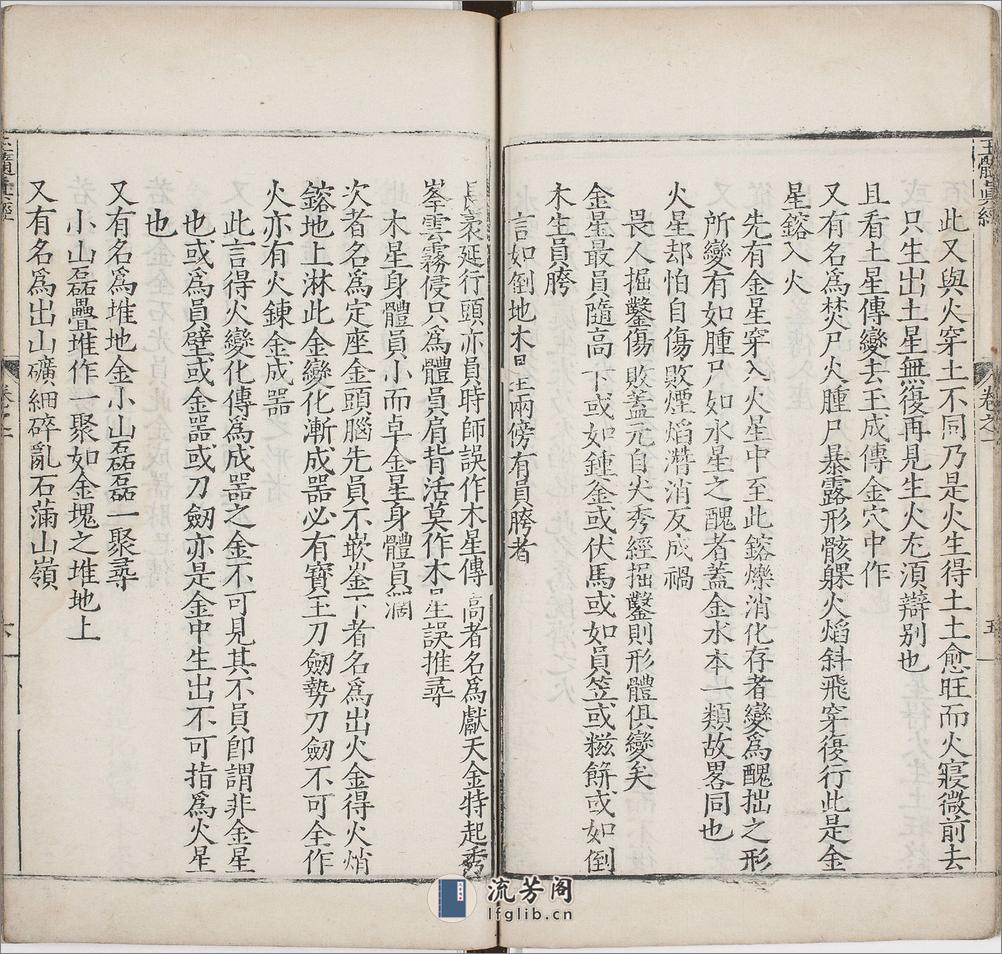 玉髓真經
卷之二
五
此又與火穿土不同乃是火生得土土愈旺而火寢微前去
只生出土星無復再見生火尢湏辯别也
且看土星傳變去王成傳金穴中作
又有名為焚尸火腫尸暴露形骸躶火焰斜飛穿復行此是金
星鎔入火
先有金星穿入火星中至此鎔爍消化存者變爲醜拙之形
所變有如腫尸如水星之醜者蓋金水本一類故畧同也
火星却怕自傷敗煙焰潛消反成禍
畏人掘鑿傷敗蓋元自尖秀經掘鑿則形體俱變矣
金星最員隨高下或如鍾釜或伏馬或如員笠或糍餅或如倒
木生員胯
言如倒地木星生兩傍有員胯者
長袤延行頭亦員時師誤作木星傳高者名爲獻天金特起秀
峯雲霧侵只爲體員肩背活莫作木星誤推尋
木星身體員小而卓金星身體員濶
次者名爲定座金頭腦先員不嵌崟下者名爲出火金得火焇
鎔地上淋此金變化漸成器必有寳玉刀劒勢刀劒不可全作
火亦有火鍊金成器
此言得火變化傳為成器之金不可見其不員卽謂非金星
也或為員璧或金器或刀劒亦是金中生出不可指爲火星
也
又有名爲堆地金小山磊磊一聚尋
小山磊疊堆作一聚如金塊之堆地上
又有名爲出山礦細碎亂石滿山嶺
玉髓真經
卷之二
六
流芳阁
lfglib.cn